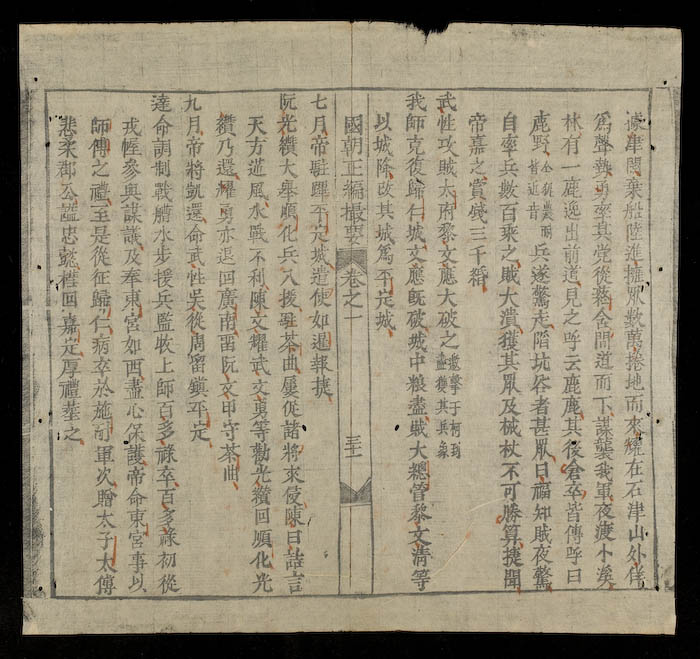 濠津閱乘船陸進擁眾數萬捲地而來耀在石津山外佯
為聲勢勇率其党從蓊舍間道而下謀襲我軍夜度小溪
林有一鹿逸出前道見之呼云鹿鹿其後倉卒皆傳呼曰
鹿野 仝銅農耐皆逆音 兵遂驚走陷坑谷者甚眾曰福知賊夜驚
自率兵數百乘之賊大潰獲其眾及械杖不可勝算捷聞
帝嘉之賞錢三千緡
武性攻賊太府黎文應大破之 追擊于柯到盡獲其兵象
我師克復歸仁城文應旣破城中粮盡賊大總管黎文清等
以城降改其城為平定城
國朝正編撮要 卷之一 三十一
七月帝駐蹕平定城遣使如暹報捷
阮光纘大舉順化兵入援駐茶曲屢促諸將來侵陳曰誥言
天方逆風水戰不利陳文耀武文勇等勸光纘回順化光
纘乃還耀勇亦退回廣南畱阮文甲守茶曲
九月帝將凱還命武性吳從周畱鎮平定
達命調制戰艚水步援兵監牧上師百多祿卒百多祿初從
戎幄參與謀議及奉東宮如西盡心保護帝命東宮事以
師傅之禮至是從征歸仁病卒於施耐軍次贈太子太傅
悲柔郡公諡忠懿櫬回嘉定厚禮葬之